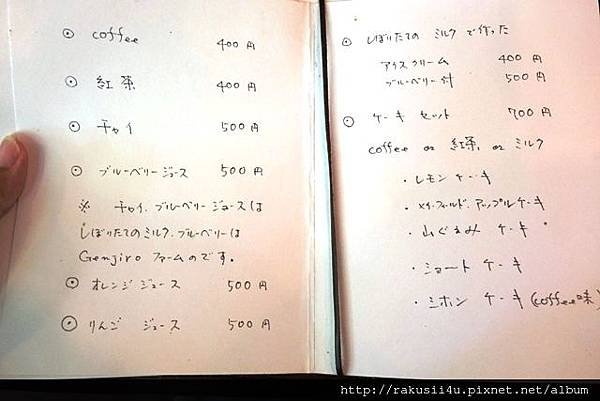 ⊙ coffee 400円
⊙ 紅茶 400円
⊙ チャイ 500円
⊙ ブルーベリージュース 500円
※ チャイ、ブルーベリージュースは
しぼりたてのミルク、ブルーベリーは
Genjiro ファームのです。
⊙ オレンジジュース 500円
⊙ りんご ジュース 500円
⊙ しぼりたての ミルク で作った
アイスクリーム 400円
ブルーベリー付 500円
⊙ ケーキ セット 700円
coffee or 紅茶, or ミルク
・レモン ケーキ
・メイフィールド、アップルケーキ
・山ぐるみ ケーキ
・ショート ケーキ
・ミホン ケーキ (coffee味)
http://rakusii4u.pixnet.net/album